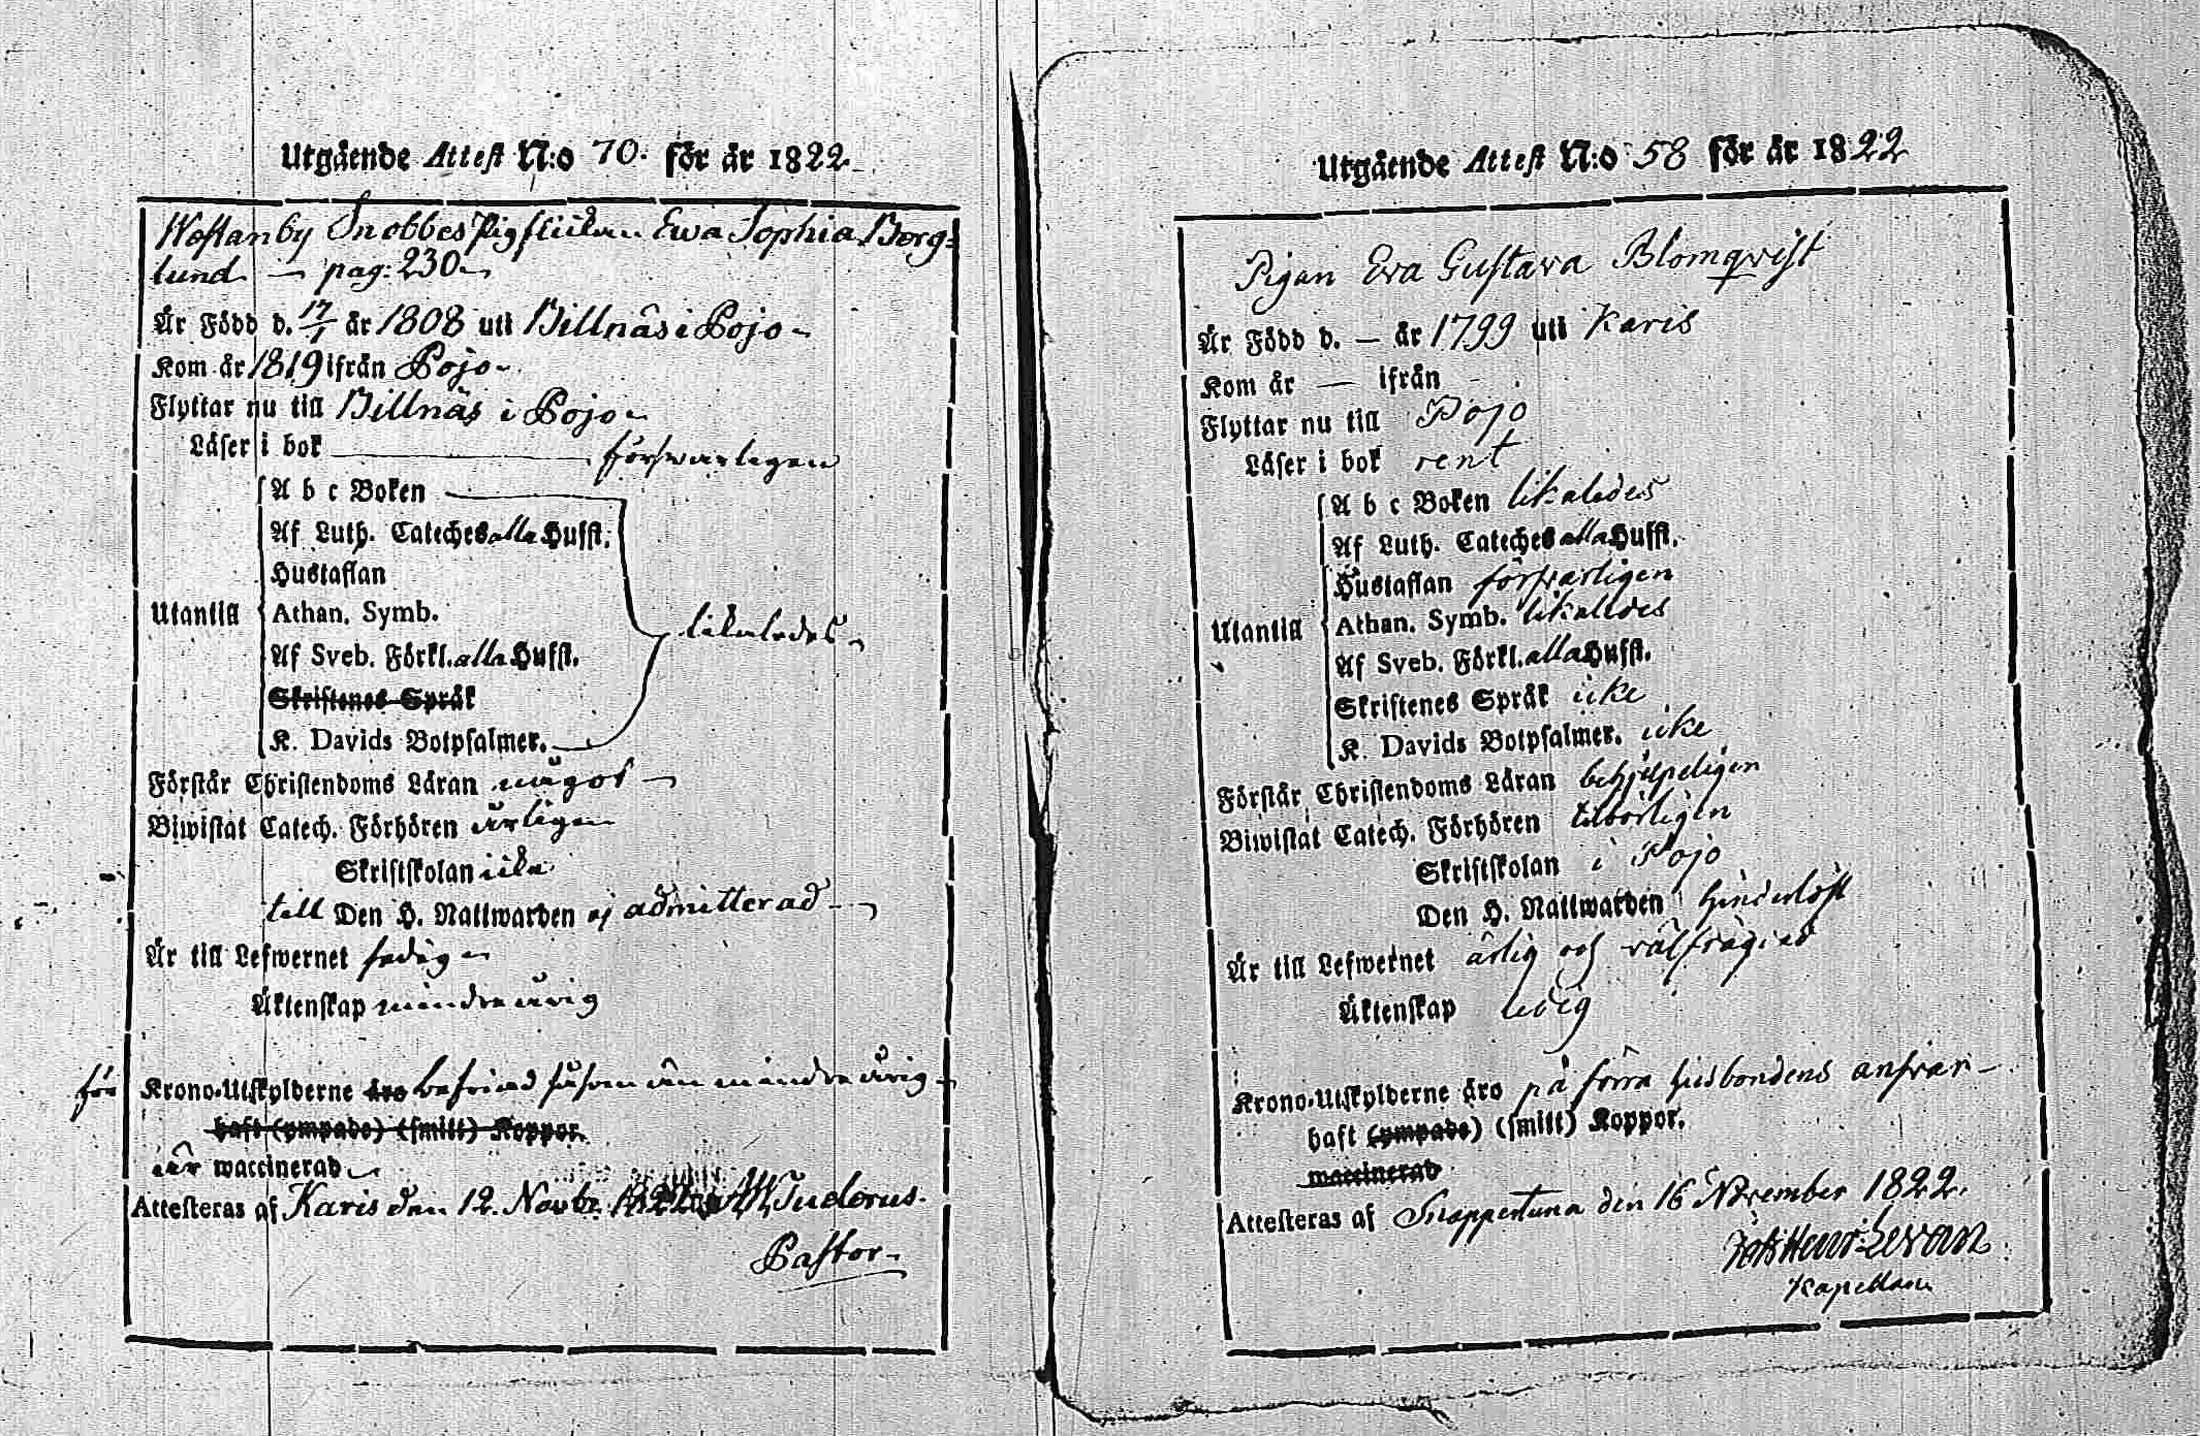 Utgående Attest N:o 70. för år 1822
Westanby Snobbes Pigflickan Ewa Sophia Berg=
lund — pag: 230
Är Född d. 17/1 år 1808 uti Billnäs i Pojo
Kom år 1819 ifrån Pojo
Flyttar nu till Billnäs i Pojo
Läser i bok försvarligen
A b c Boken
Af Luth. Cateches alla Hufst.
Hustaflan
Utantill
Athan. Symb.
likaledes
Af Sveb. Förkl. alla Hufst.
Skriftenes Språk
K. Davids Botpsalmer.
Förstår Christendoms Läran något
Biwistat Catech. Förhören årligen
Skriftskolan icke
till Den H. Nattwarden ej admitterad
Är till Lefwernet sedig
Äktenskap minderårig
för Krono-Utskylderne äro befriad såsom minderårig
haft (ympade) (smitt) Koppor.
är waccinerad
Attesteras af Karis den 12. Novbr. Tuderus.
Pastor
Utgående Attest N:o 58 för år 1822
Pigan Eva Gustava Blomqvist
Är Född d. — år 1799 uti Karis
Kom år — ifrån
Flyttar nu till Pojo
Läser i bok rent
A b c Boken likaledes
Af Luth. Cateches alla Hufst.
Hustaflan försvarligen
Utantill
Athan. Symb. likaledes
Af Sveb. Förkl. alla Hufst.
Skriftenes Språk icke
K. Davids Botpsalmer. icke
Förstår Christendoms Läran behjelpeligen
Biwistat Catech. Förhören tilbörligen
Skriftskolan i Pojo
Den H. Nattwarden hinderlöst
Är till Lefwernet ärlig och välfrägdad
Äktenskap ledig
Krono-Utskylderne äro på förra husbondens ansvar
haft (ympade) (smitt) Koppor.
waccinerad
Attesteras af Snappertuna den 16 November 1822.
Levan
Kapellan